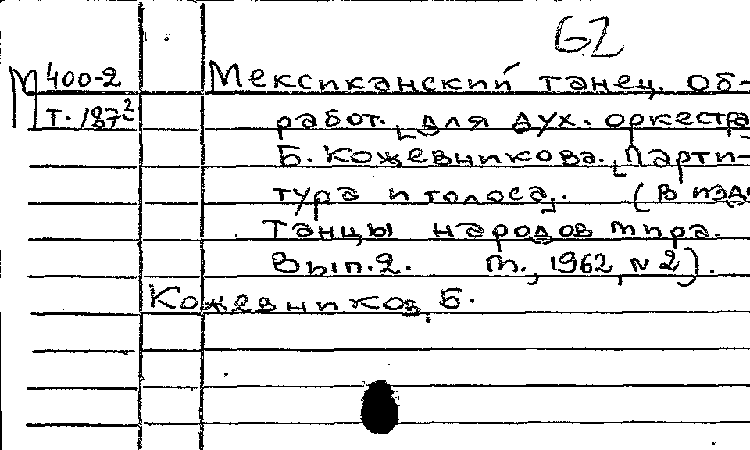 62
М 400-2
Т. 187²
Мексиканский танец. Об-
работ. [для дух. оркестра
Б. Кожевникова. [Парти-
тура и голоса]. (В изд.
Танцы народов мира.
Вып. 2. М., 1962, № 2).
Кожевников, Б.